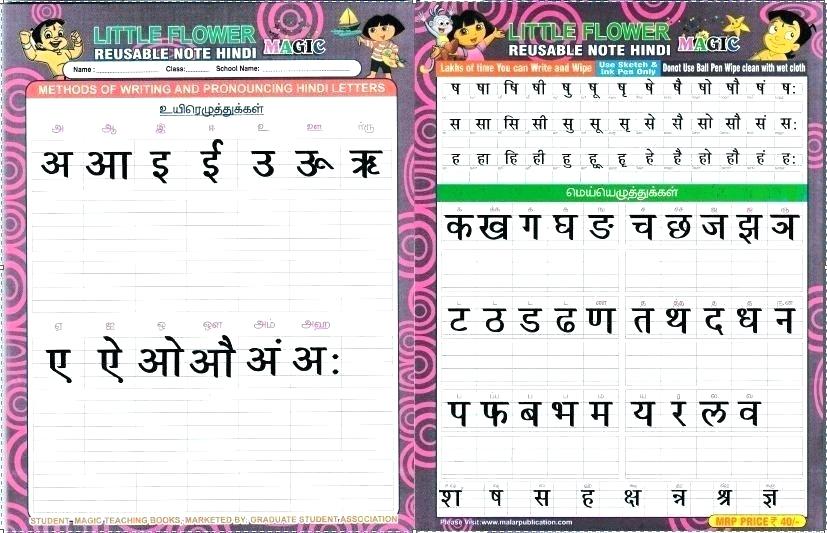 LITTLE FLOWER
REUSABLE NOTE HINDI MAGIC
Name : Class: School Name:
METHODS OF WRITING AND PRONOUNCING HINDI LETTERS
உயிரெழுத்துக்கள்
அ ஆ இ ஈ உ ஊ
अ आ इ ई उ ऊ ऋ
ஏ ஐ ஒ ஔ அம் அஹ
ए ऐ ओ औ अं अः
STUDENT MAGIC TEACHING BOOKS, MARKETED BY: GRADUATE STUDENT ASSOCIATION
LITTLE FLOWER
REUSABLE NOTE HINDI MAGIC
Lakhs of time You can Write and Wipe Use Sketch & Ink Pen Only Donot Use Ball Pen Wipe clean with wet cloth
ष षा षि षी षु षू षृ षे षै षो षौ षं षः
स सा सि सी सु सू सृ से सै सो सौ सं सः
ह हा हि ही हु हू हृ हे है हो हौ हं हः
மெய்யெழுத்துக்கள்
क ख ग घ ङ च छ ज झ ञ
ट ठ ड ढ ण त थ द ध न
प फ ब भ म य र ल व
श ष स ह क्ष त्र श्र ज्ञ
Please Visit:www.malarpublication.com
MRP PRICE ₹ 40/-